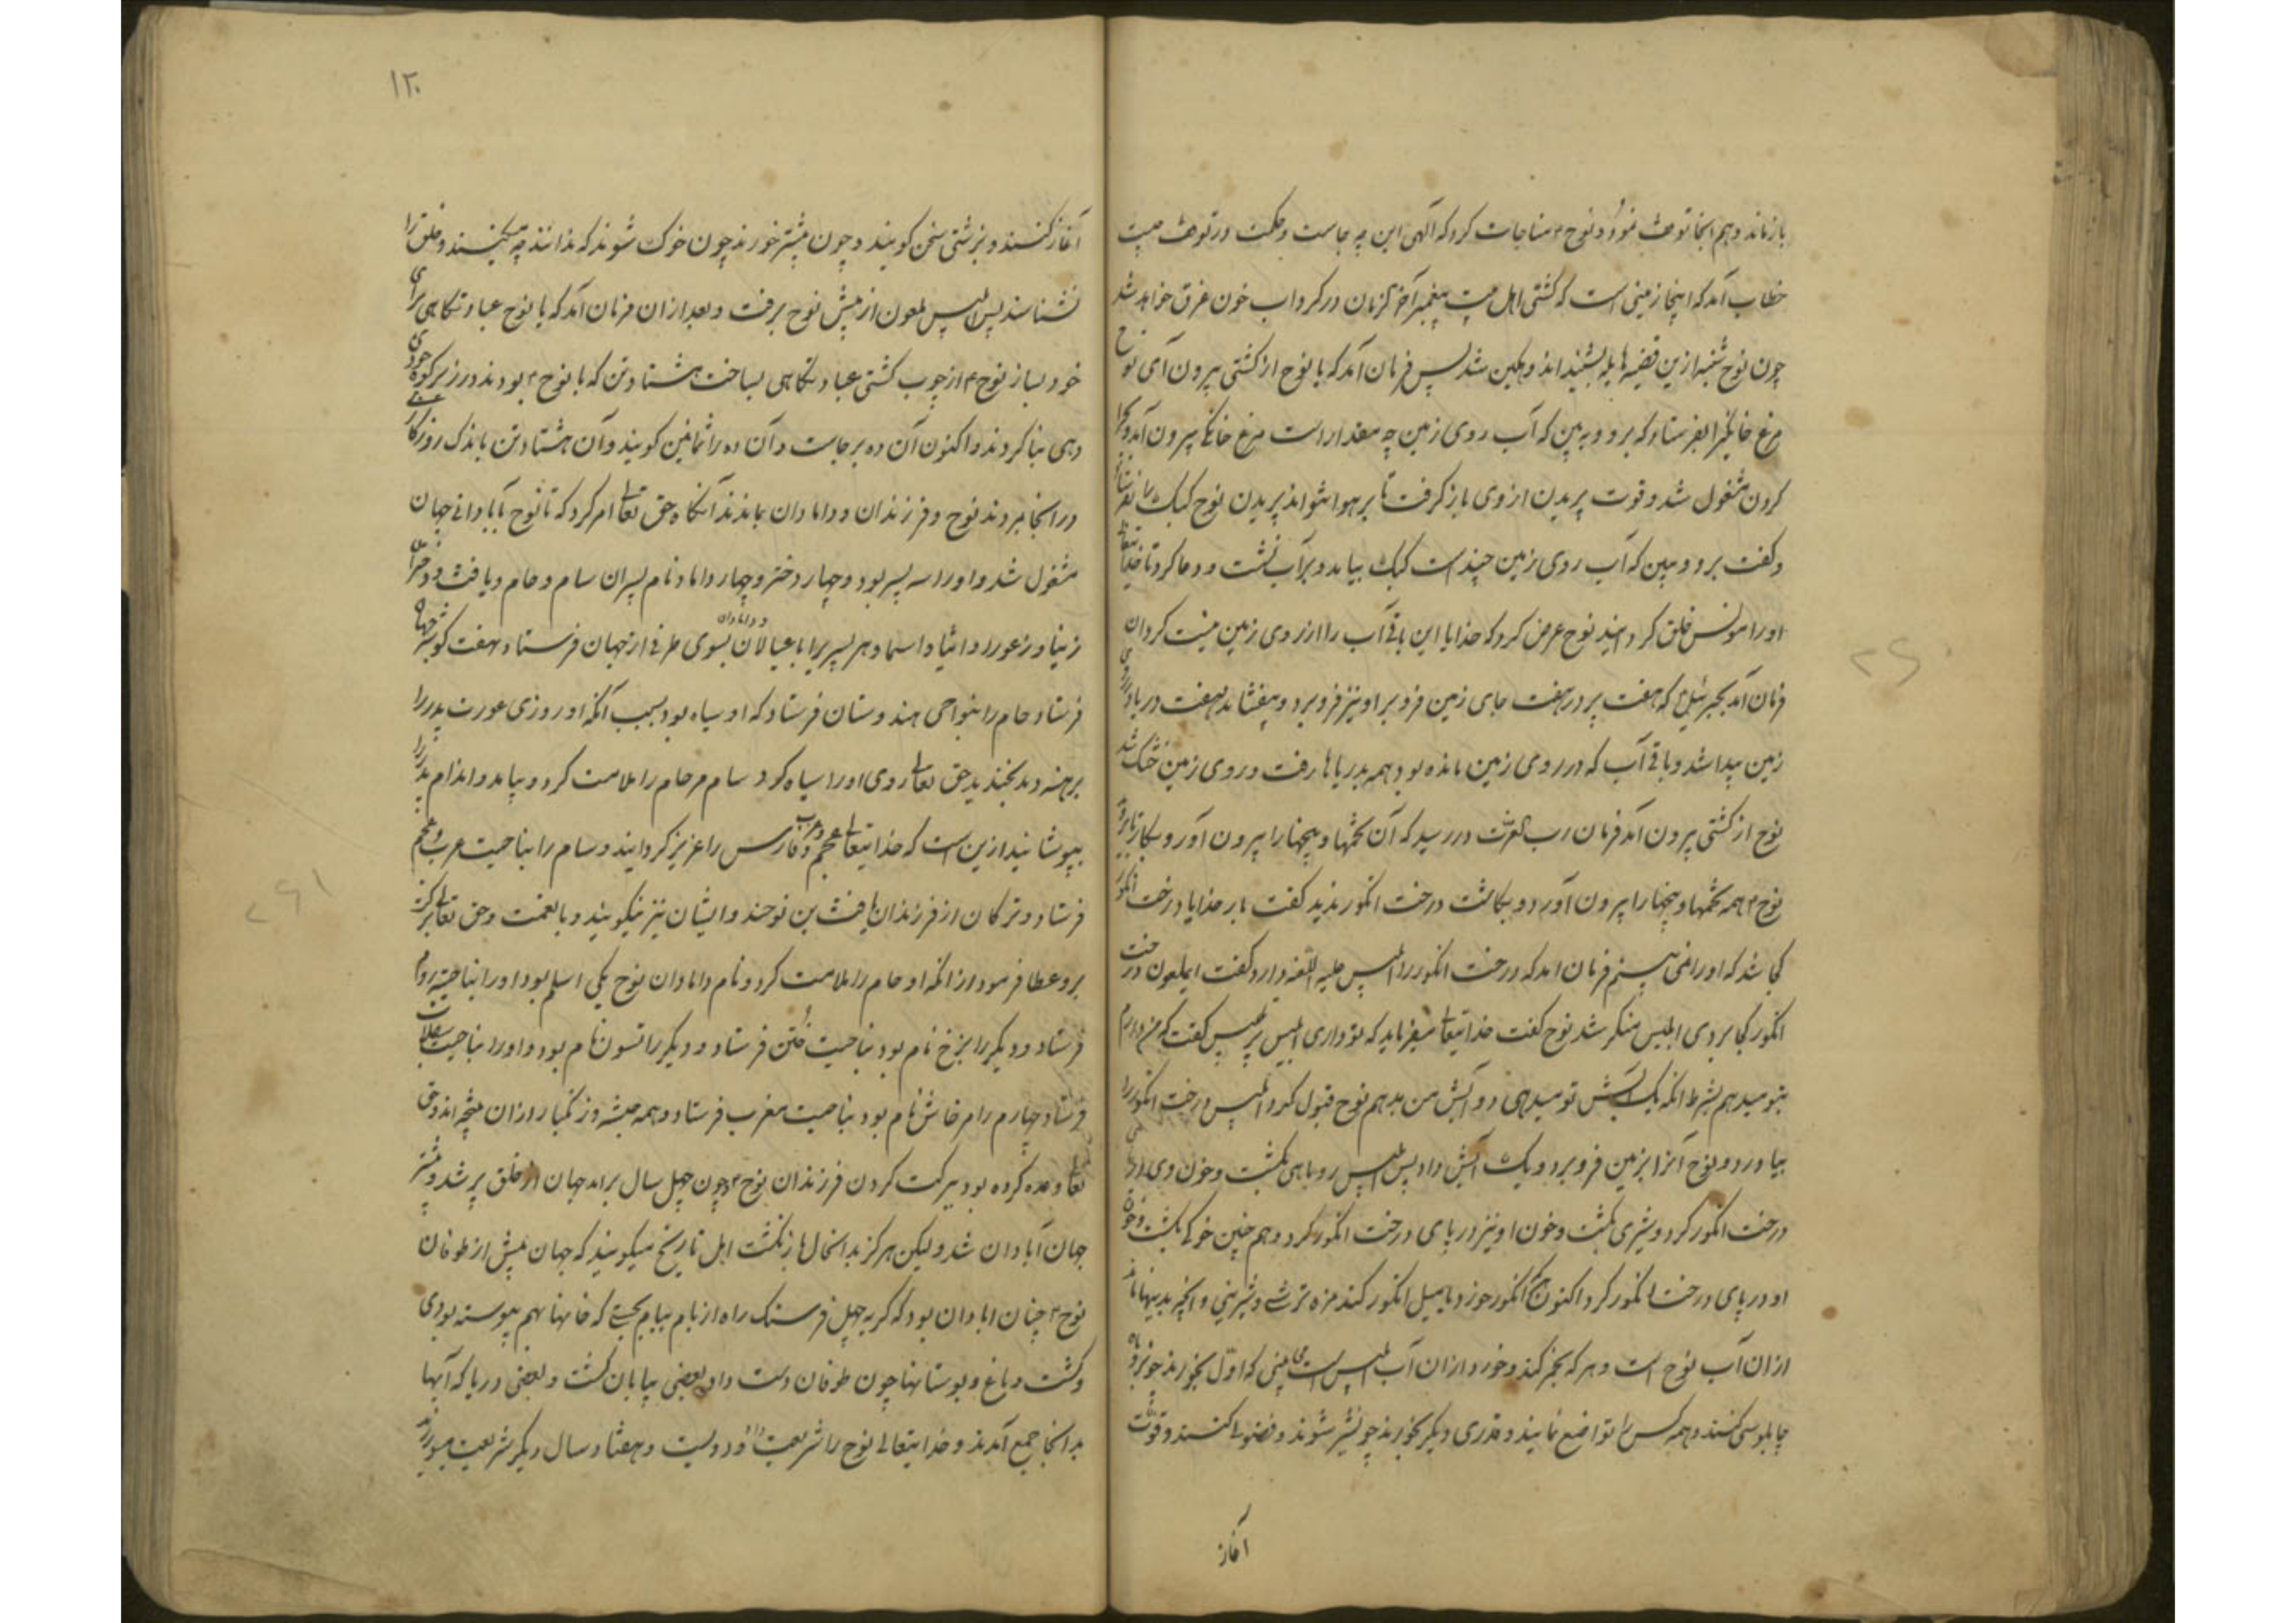 باز ماند و هم انجا توقف نمود و نوح ۴ مناجات کرد که الهی این چه جاست و حکمت در توقف چیست
خطاب آمد که اینجا زمینی است که کشتی اهل بیت پیغمبر آخر الزمان در کرداب خون غرق خواهد شد
چون نوح ازین قضیه بشنید اند وهکین شد پس فرمان آمد که یا نوح از کشتی بیرون آی نوح
مرغ خانکیرا بفرستاد که برو و ببین که آب روی زمین چه مقدار است مرغ خانکی بیرون آمد و
کردن مشغول شد و قوت پریدن از وی باز کرفت تا بر هوا نتواند پریدن نوح کبک را بفرستاد
و کفت برو و ببین که آب روی زمین چند است کبک بیامد و بر آب نشست و دعا کرد تا خدایتعالی
او را مونس خلق کردانید نوح عرض کرد که خدایا این باقی آب را از روی زمین نیست کردان
فرمان آمد بجبرئیل ۴ که هفت پر در هفت جای زمین فرو بر او نیز فرو برد و بیفشاند هفت دریا در روی
زمین پیدا شد و باقی آب که در روی زمین مانده بود همه بدریاها رفت و روی زمین خشک شد
نوح از کشتی بیرون آمد فرمان رب العزت در رسید که آن تخمها و بیخها را بیرون آور و بکار تا بروید
نوح ۴ همه تخمها و بیخها را بیرون آورد و بکاشت درخت انکور ندید کفت بار خدایا درخت انکور
کجا شد که او را نمی بینم فرمان امد که درخت انکور را ابلیس علیه اللعنه دارد کفت ایملعون درخت
انکور کجا بردی ابلیس منکر شد نوح کفت خدایتعالی میفرماید که تو داری ابلیس کفت که من دارم
بتو میدهم بشرط انکه یک آبش تو میدهی دو آبش من بدهم نوح قبول کرد ابلیس درخت انکور را
بیاورد و نوح آنرا بزمین فرو برد و یک آبش داد پس ابلیس روباهی بکشت و خون وی در پای
درخت انکور کرد و شیری بکشت و خون او نیز در پای درخت انکور کرد و هم چنین خوکی بکشت و خون
او در پای درخت انکور کرد اکنون انکور خورد یا میل انکور کند مزه ترشی و شیرینی و انچه بدینها ماند
از ان آب نوح است و هر که خمر کند و خورد از ان آب ابلیس است نمی بینی که اول بخورند چو روباه
چابلوسی کنند و همه کس را تواضع نمایند و قدری دیکر بخورند چو شیر شوند و فضولی کنند و قوت
آغاز
۱۲۰
آغاز کنند و بزشتی سخن کویند و چون بیشتر خورند چون خوک شوند که ندانند چه میکنند و خلق را
نشناسند پس ابلیس ملعون از پیش نوح برفت و بعد از ان فرمان آمد که یا نوح عبادتکاهی برای
خود بساز نوح ۴ از چوب کشتی عبادتکاهی بساخت هشتاد تن که با نوح ۴ بودند در زیر کوه جودی
دهی بنا کردند و اکنون آن ده بر جاست و آن ده را ثمانین کویند و آن هشتاد تن باندک روزکاری
در انجا مردند نوح و فرزندان و دامادان بماندند آنکاه حق تعالی امر کرد که تا نوح بآبادانی جهان
مشغول شد و او را سه پسر بود و چهار دختر و چهار داماد نام پسران سام و حام و یافث و دختران
زنیا و زعورا و انیا و اسما و هر پسریرا با عیالان و دامادان بسوی طرفی از جهان فرستاد هفت کوشه جهان
فرستاد حام را بنواحی هندوستان فرستاد که او سیاه بود بسبب آنکه او روزی عورت پدر را
برهنه دید بخندید حق تعالی روی او را سیاه کرد سام مر حام را ملامت کرد و بیامد و اندام پدر را
بپوشانید ازین است که خدایتعالی عجم و عرب و فارس را عزیز کردانید و سام را بناحیت عرب و عجم
فرستاد و ترکان از فرزندان یافث بن نوحند و ایشان نیز نیکویند و با نعمت و حق تعالی برکت
برو عطا فرمود از انکه او حام را ملامت کرد و نام دامادان نوح یکی اسلم بود او را بناحیت روم
فرستاد و دیکر را برزخ نام بود بناحیت ختن فرستاد و دیکر را تسون نام بود و او را بناحیت سقلاب
فرستاد چهارم را مرخاش نام بود بناحیت مغرب فرستاد و همه حبشه و زنکبار از ان نتیجه اند و حق
تعالی وعده کرده بود ببرکت کردن فرزندان نوح ۴ و چون چهل سال برامد جهان از خلق پر شد و بیشتر
جهان آبادان شد و لیکن هرکز بدانحال باز نکشت اهل تاریخ میکویند که جهان پیش از طوفان
نوح ۴ چنان ابادان بود که کربه چهل فرسنک راه از بام ببام بجستی که خانها بهم پیوسته بودی
و کشت و باغ و بوستانها چون طوفان دست داد بعضی بیابان کشت و بعضی دریا که آبها
بدانجا جمع آمدند و خدایتعالی نوح را شریعت داد و دویست و هفتاد سال دیکر شریعت میورزید